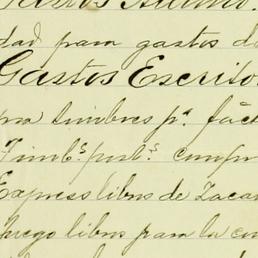 Gastos
dad para gastos d
Gastos Escrito
pra timbres pª. fac
Timbˢ. pubˢ. comp
Express libros de Zaca
Juego libros para la c